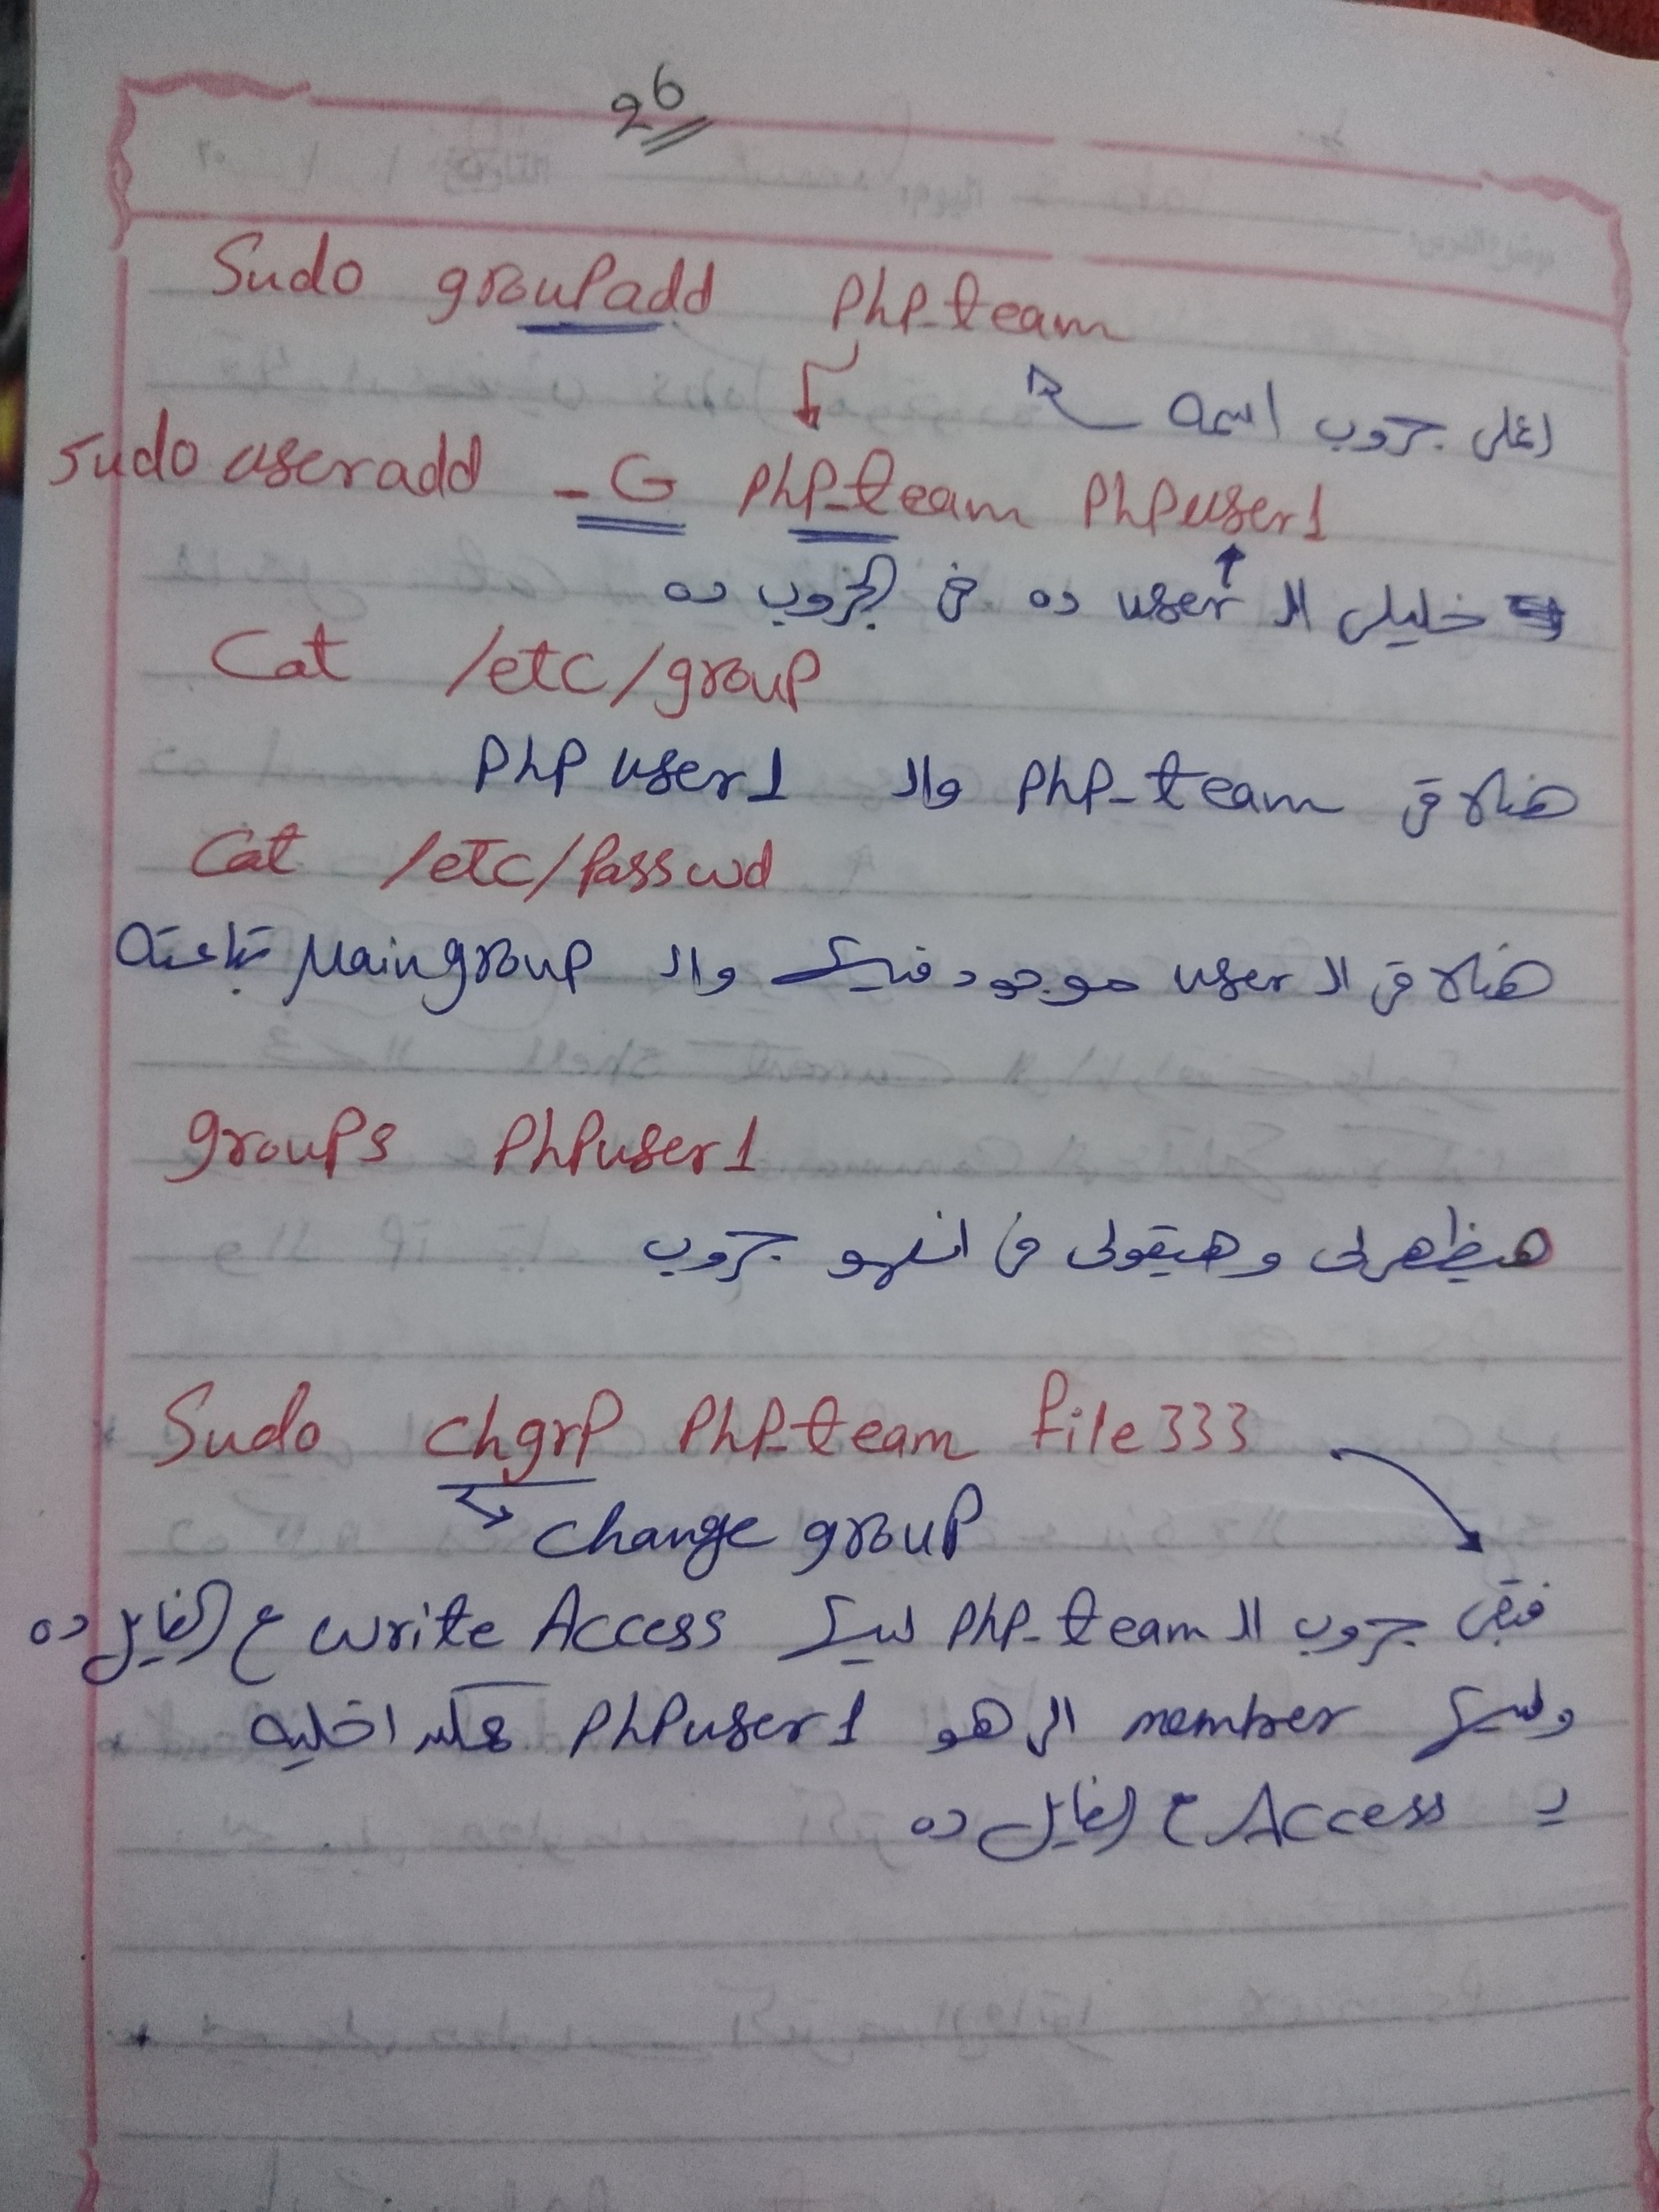 26
Sudo groupadd php_team
اعملى جروب اسمه
sudo useradd -G php_team phpuser1
خليلى الـ user ده فى الجروب ده
Cat /etc/group
هنلاقى php_team والـ phpuser1
Cat /etc/passwd
هنلاقى الـ user موجود هناك والـ Maingroup بتاعته
groups phpuser1
هيظهرلى وهيقولى فى انهو جروب
Sudo chgrp php_team file333
change group
فبقى جروب الـ php_team ليه write Access ع الفايل ده
وليه member الى هو phpuser1 هكده اخليه
يـ Access ع الفايل ده